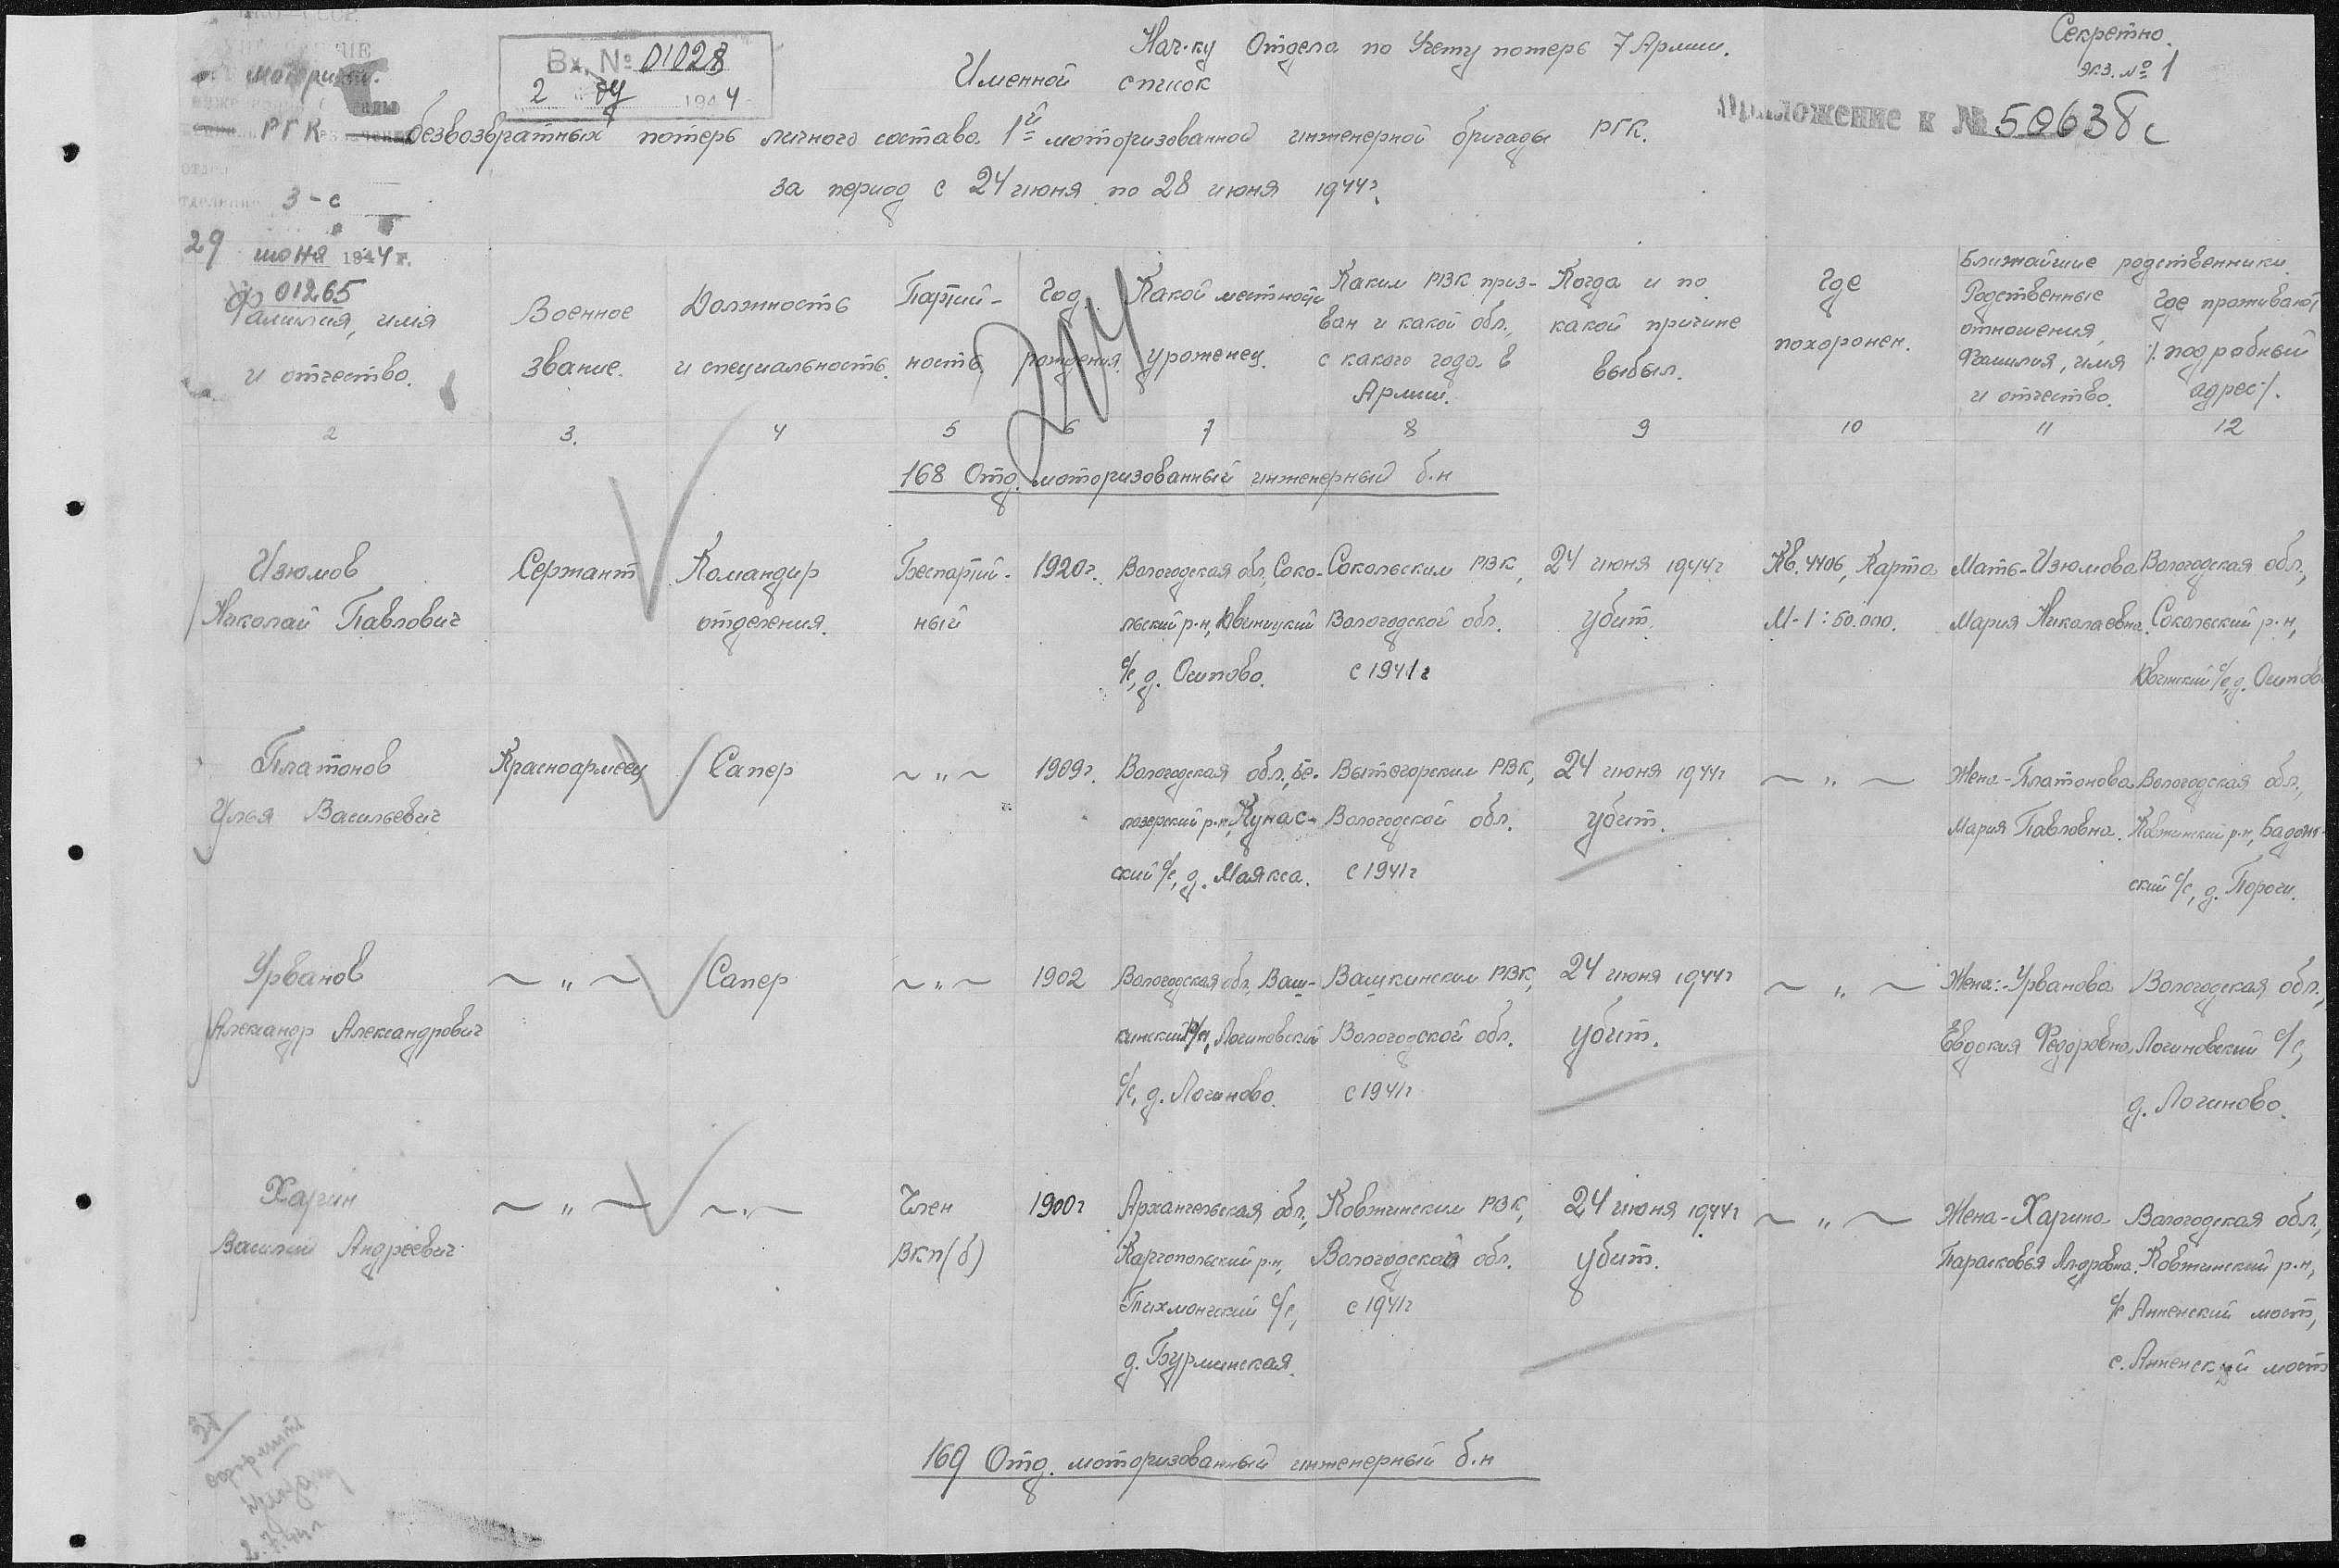 Секретно.
экз. № 1
Нач-ку Отдела по Учету потерь 7 Армии.
Вх. № 01028
2 1944
Именной список
Приложение к № 50638с
безвозвратных потерь личного состава 1й моторизованной инженерной бригады РГК.
за период с 24 июня по 28 июня 1944г.
РГК
3-с
29 июня 1944 г.
01265
204
Фамилия, имя и отчество.
Военное звание.
Должность и специальность.
Партий-
ность
Год рождения.
Какой местности уроженец.
Каким РВК приз-
ван и какой обл.,
с какого года в
Армии.
Когда и по
какой причине
выбыл.
Где
похоронен.
Ближайшие родственники.
Родственные
отношения,
фамилия, имя
и отчество.
Где проживают
/. подробный
адрес/.
2 3. 4 5 6 7 8 9 10 11 12
168 Отд. моторизованный инженерный б-н
Изюмов
Николай Павлович
Сержант
Командир
отделения.
Беспартий-
ный
1920г.
Вологодская обл., Соко-
льский р-н, Двиницкий
с/с, д. Осипово.
Сокольским РВК,
Вологодской обл.
с 1941г
24 июня 1944г
убит.
Кв. 4406, Карта
М-1:50.000.
Мать-Изюмова
Мария Николаевна.
Вологодская обл.,
Сокольский р-н,
с/с, д. Осипово
Платонов
Илья Васильевич
Красноармеец
Сапер
~ " ~
1909г.
Вологодская обл., Бе-
лозерский р-н, Кунас-
ский с/с, д. Маякса.
Вытегорским РВК,
Вологодской обл.
с 1941г
24 июня 1944г
убит.
~ " ~
Жена-Платонова
Мария Павловна.
Вологодская обл.,
Ковжинский р-н, Бадож-
ский с/с, д. Пороги.
Урванов
Александр Александрович
~ " ~
Сапер
~ " ~
1902
Вологодская обл., Ваш-
кинский р/н, Логиновский
с/с, д. Логиново.
Вашкинским РВК,
Вологодской обл.
с 1941г
24 июня 1944г
убит.
~ " ~
Жена:-Урванова
Евдокия Федоровна,
Вологодская обл.,
Логиновский с/с,
д. Логиново.
Харин
Василий Андреевич
~ " ~
~ " ~
Член
ВКП(б)
1900г
Архангельская обл.,
Каргопольский р-н,
Тихмоньгский с/с,
д. Бурминская.
Ковжинским РВК,
Вологодской обл.
с 1941г
24 июня 1944г
убит.
~ " ~
Жена-Харина
Парасковья
Вологодская обл.,
Ковжинский р-н,
с/с Анненский мост,
с. Анненский мост
169 Отд. моторизованный инженерный б-н